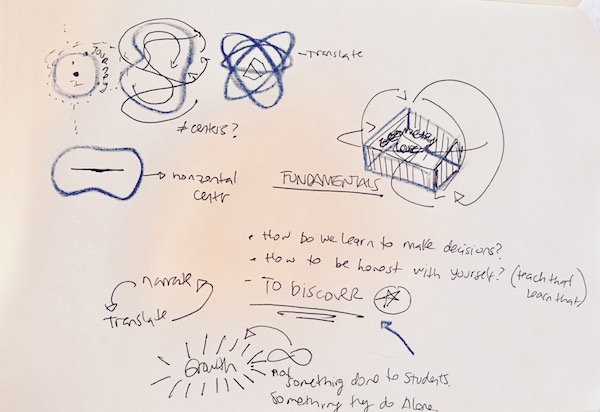 JOURNEY
Translate
# centers?
horizontal
centr
GEOMETRY
FUNDAMENTALS
• How Do we learn to make decisions?
• How to be honest with yourself? (teach that
learn that)
- TO DISCOVER
narrate
Translate
Growth
Not something done to students.
Something they do Alone